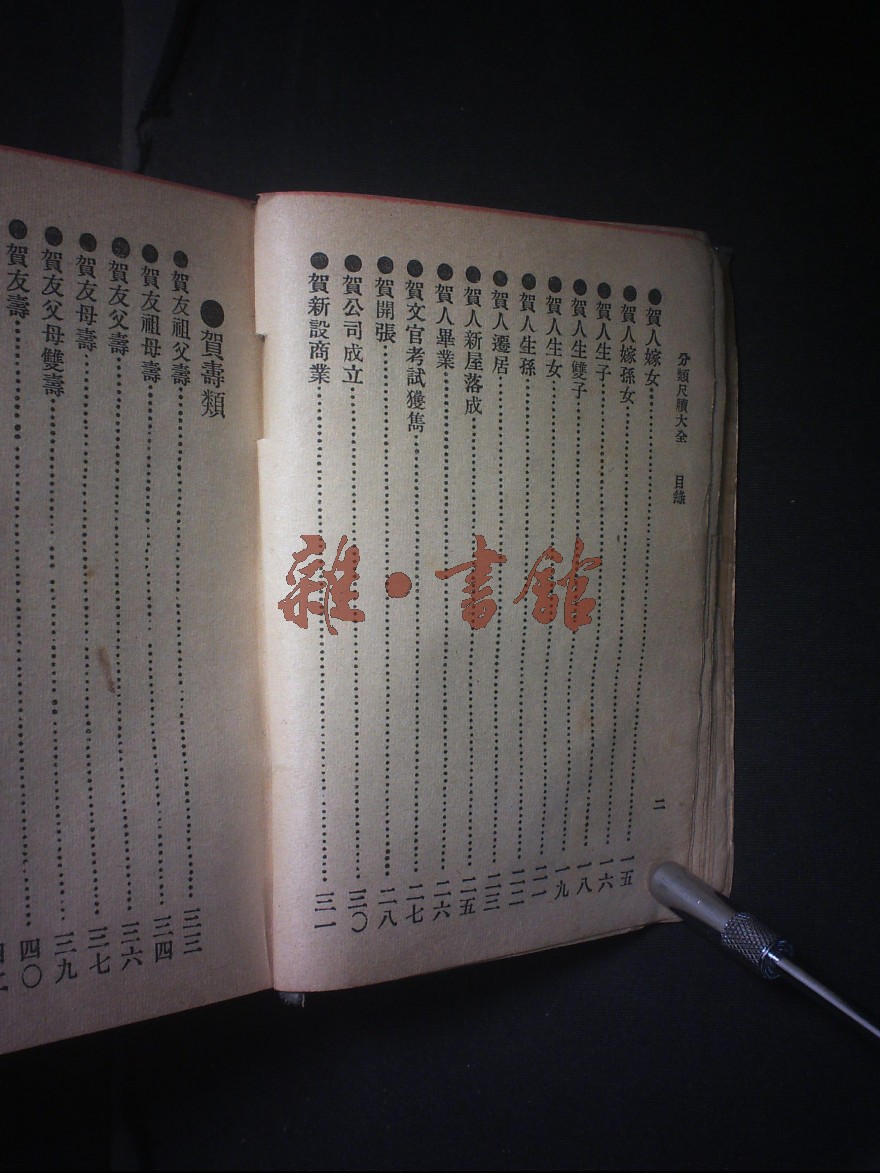 分類尺牘大全 目錄 二
●賀人嫁女……一五
●賀人嫁孫女……一六
●賀人生子……一八
●賀人生雙子……一九
●賀人生女……二一
●賀人生孫……二二
●賀人遷居……二三
●賀人新屋落成……二五
●賀人畢業……二六
●賀文官考試獲雋……二七
●賀開張……二八
●賀公司成立……三〇
●賀新設商業……三一
●賀壽類
●賀友祖父壽……三三
●賀友祖母壽……三四
●賀友父壽……三六
●賀友母壽……三七
●賀友父母雙壽……三九
●賀友壽……四〇
雜·書館